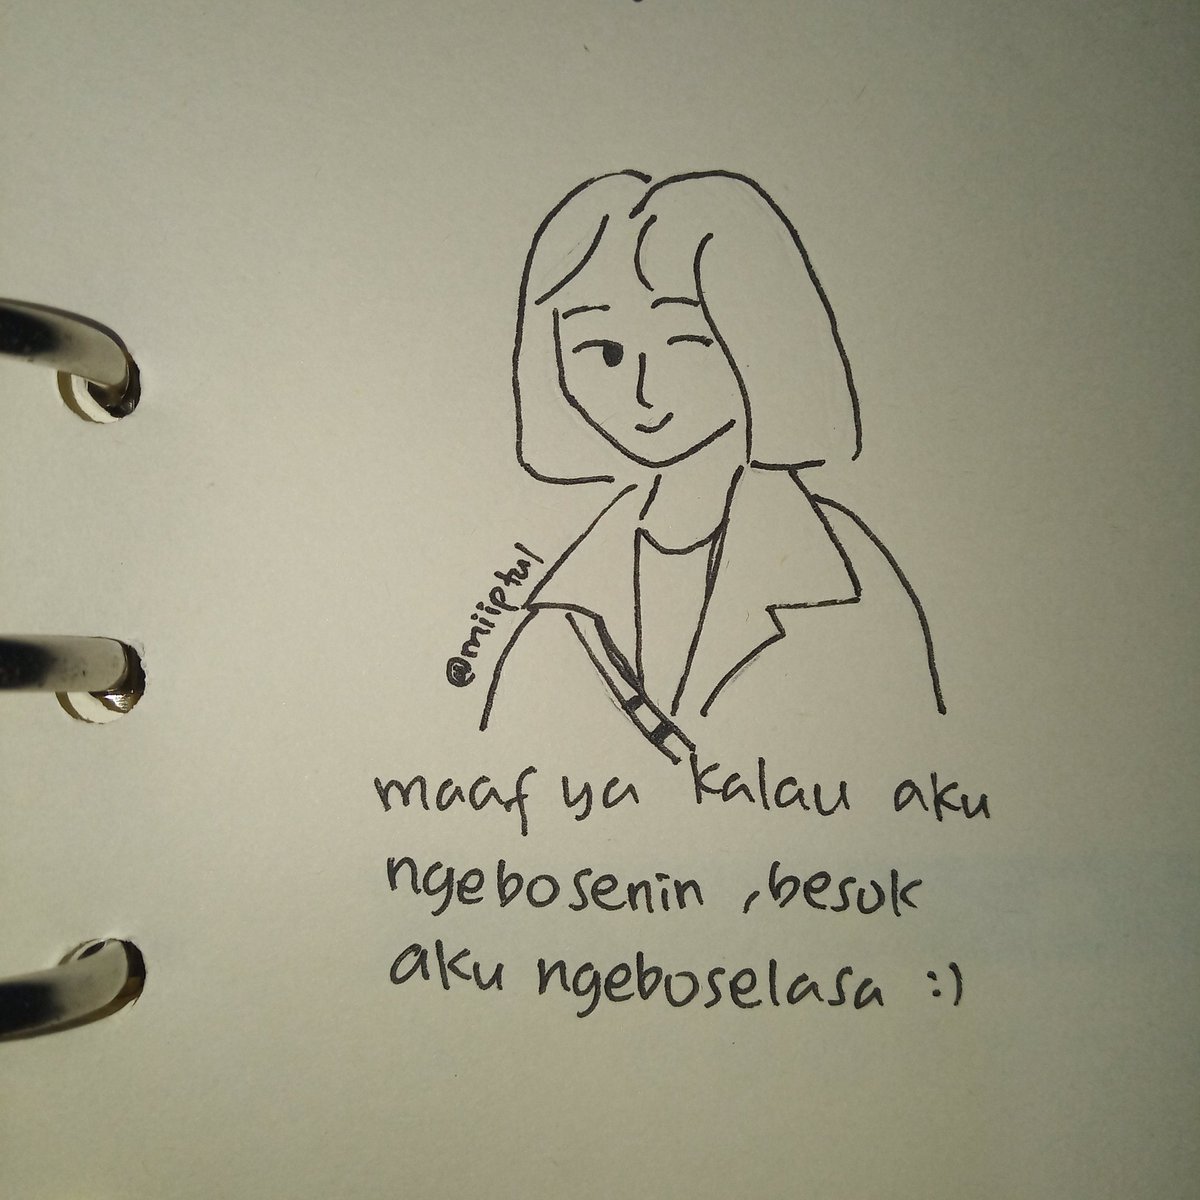 @miiptul
maaf ya kalau aku
ngebosenin, besok
aku ngeboselasa :)